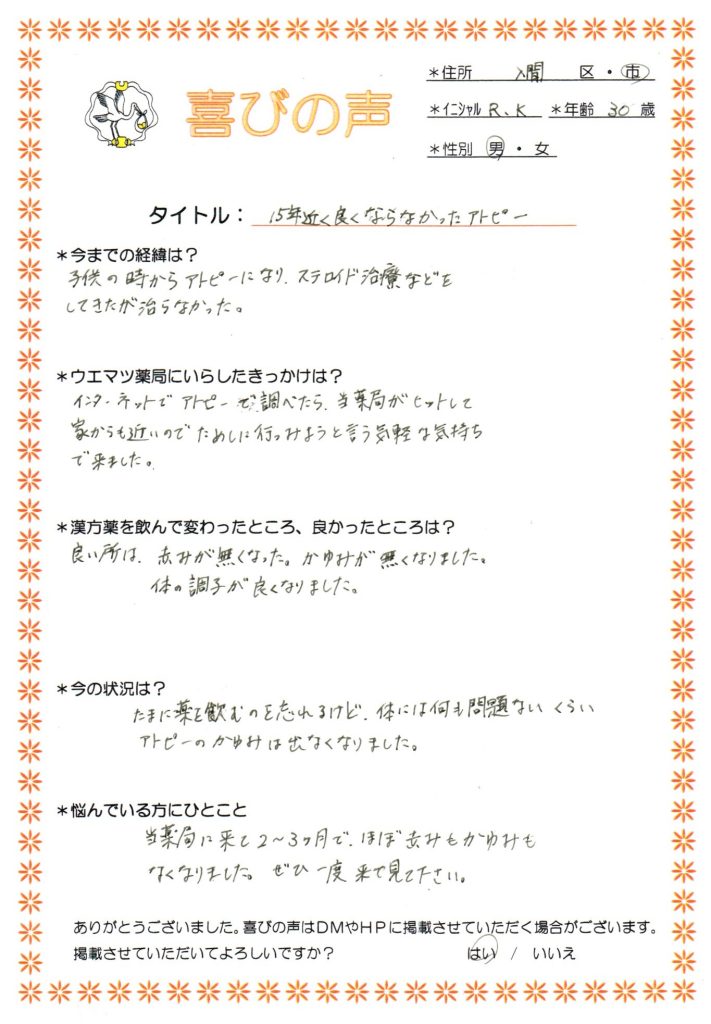 喜びの声
*住所 入間 区・市
*イニシャル R.K *年齢 30 歳
*性別 男・女
タイトル： 15年近く良くならなかったアトピー
*今までの経緯は？
子供の時からアトピーになり、ステロイド治療などを
してきたが治らなかった。
*ウエマツ薬局にいらしたきっかけは？
インターネットでアトピーで調べたら、当薬局がヒットして
家からも近いのでためしに行ってみようと言う気軽な気持ち
で来ました。
*漢方薬を飲んで変わったところ、良かったところは？
良い所は、赤みが無くなった。かゆみが無くなりました。
体の調子が良くなりました。
*今の状況は？
たまに薬を飲むのを忘れるけど、体には何も問題ないくらい
アトピーのかゆみは出なくなりました。
*悩んでいる方にひとこと
当薬局に来て2〜3ヶ月で、ほぼ赤みもかゆみも
なくなりました。ぜひ一度来て見て下さい。
ありがとうございました。喜びの声はDMやHPに掲載させていただく場合がございます。
掲載させていただいてよろしいですか？ はい / いいえ